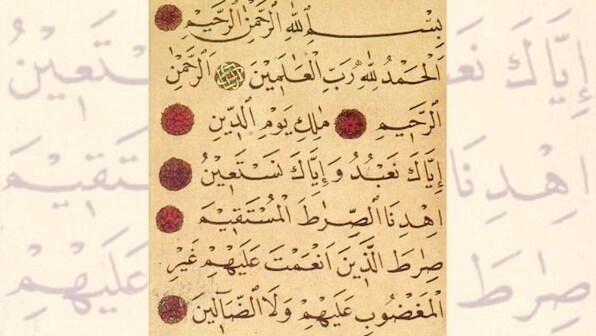 بِسْمِ اللهِ الرَّحْمٰنِ الرَّحِيمِ
اَلْحَمْدُ لِلّٰهِ رَبِّ الْعَالَمِينَ الرَّحْمٰنِ
الرَّحِيمِ مٰلِكِ يَوْمِ الدِّينِ
إِيَّاكَ نَعْبُدُ وَإِيَّاكَ نَسْتَعِينُ
اِهْدِنَا الصِّرٰطَ الْمُسْتَقِيمَ
صِرٰطَ الَّذِينَ اَنْعَمْتَ عَلَيْهِمْ غَيْرِ
الْمَغْضُوبِ عَلَيْهِمْ وَلَا الضَّالِّينَ